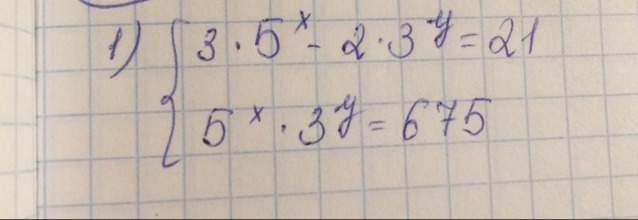 1) { 3 · 5^x - 2 · 3^y = 21
5^x · 3^y = 675